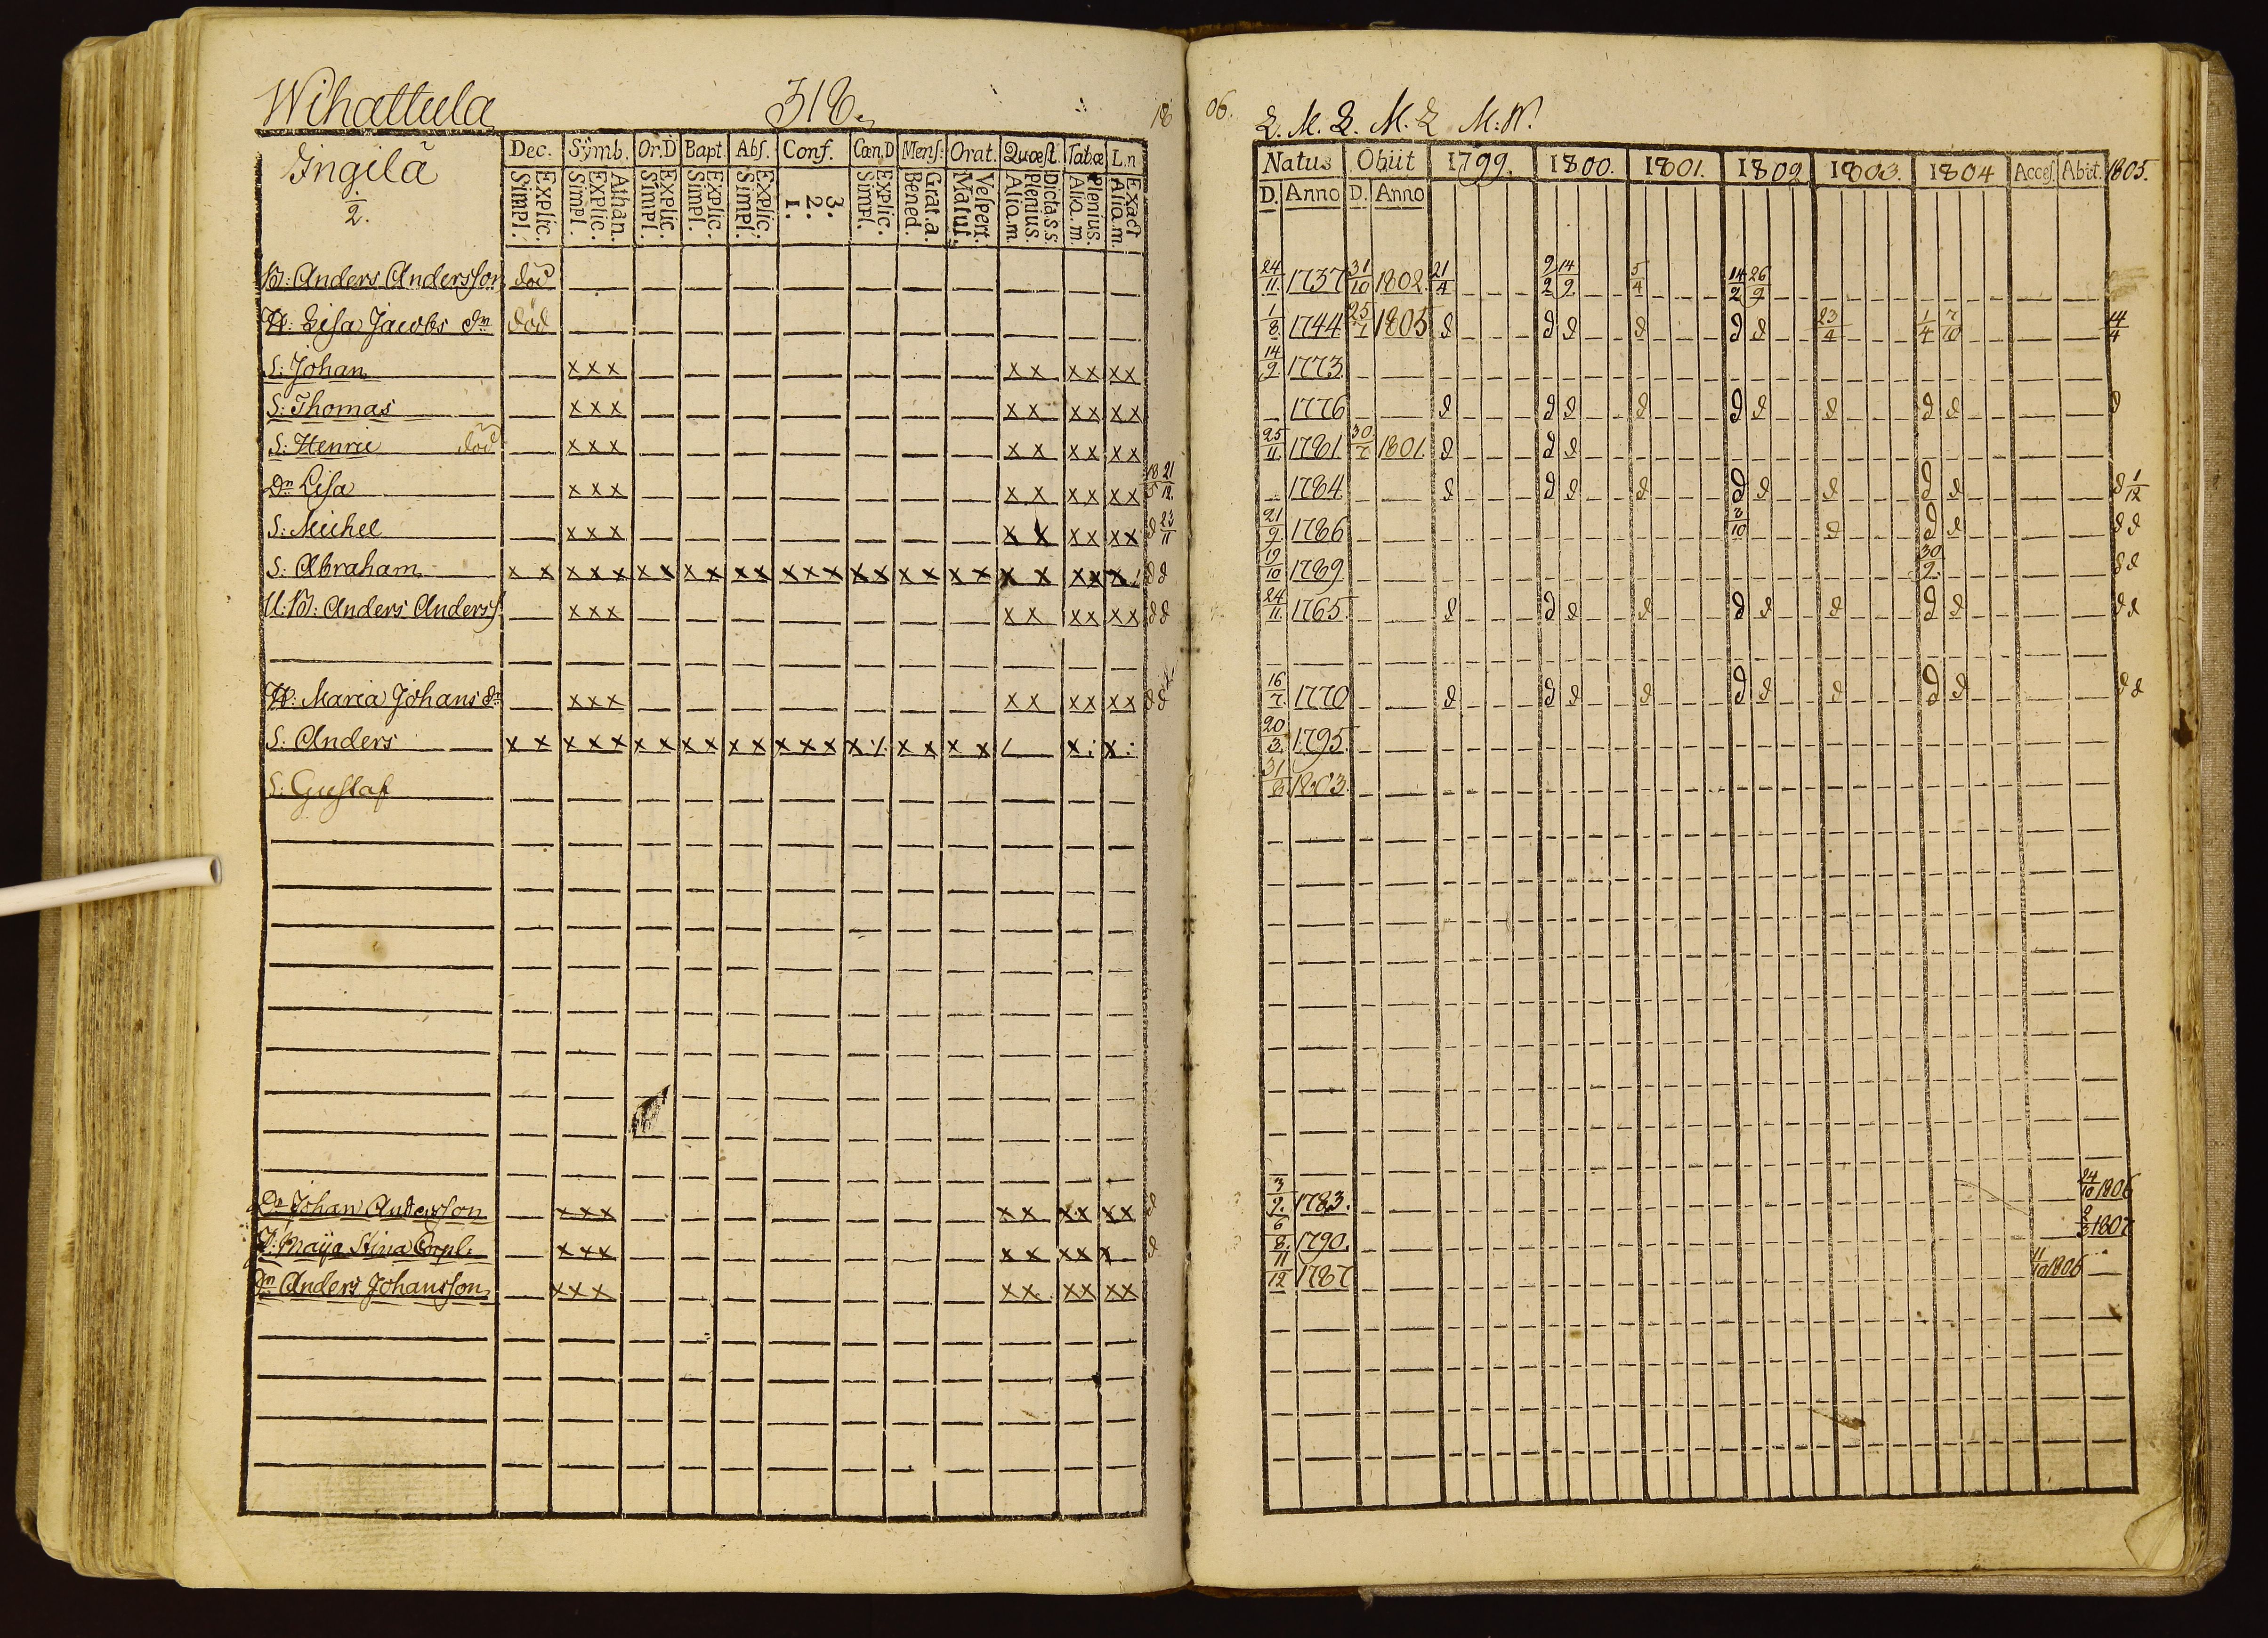 Wihattula 318.
Ingilä
2.
Dec. Symb. Or.D Bapt. Abs. Conf. Cœn.D Mens: Orat. Quæst. Tabæ L.n
Explic. Simpl. Athan. Explic. Simpl. Explic. Simpl. Explic. Simpl. Explic. Simpl. 3. 2. 1. Explic. Simpl. Grat.a. Bened. Vespert. Matut. Dicta.s.s. Plenius. Alio.m. Plenius. Alio.m. Exact Alio.m.
B: Anders Andersson död
H: Lisa Jacobs dr död
S: Johan x x x x x x x x x
S: Thomas x x x x x x x x x
S: Henric död x x x x x x x x x
Dr Lisa x x x x x x x x x 18/5 21/12
S: Michel x x x x x x x x x d 23/11
S: Abraham x x x x x x x x x x x x x x x x x x x x x x x x x d d
U: B: Anders Anderss. x x x x x x x x x d d
H: Maria Johans dr x x x x x x x x x d d
S: Anders x x x x x x x x x x x x x x x x x x x x x
S: Gustaf
Dr Johan Andersson x x x x x x x x x d
P: Maija Stina Corpl: x x x x x x x x d
Dr Anders Johansson x x x x x x x x x
1806.
L. M. L. M. L M: W.
Natus Obiit 1799. 1800. 1801. 1802 1803. 1804 Acces. Abit. 1805.
D. Anno D. Anno
24/11 1737 31/10 1802 21/4 9/2 14/9 5/4 14/2 26/9
1/8 1744 25/1 1805 d d d d d d 23/4 1/4 7/10 14/4
14/9 1773
1776 d d d d d d d d d d
25/11 1781 30/7 1801 d d d
1784 d d d d d d d d d d 1/12
21/9 1786 3/10 d d d d d
19/10 1789 30/9 d d
24/11 1765 d d d d d d d d d d d
16/7 1770 d d d d d d d d d d d
20/3 1795
31/8 1803.
3/9 1783. 24/10 1806
6/8 1790. 1807
11/12 1787 11/10 1806